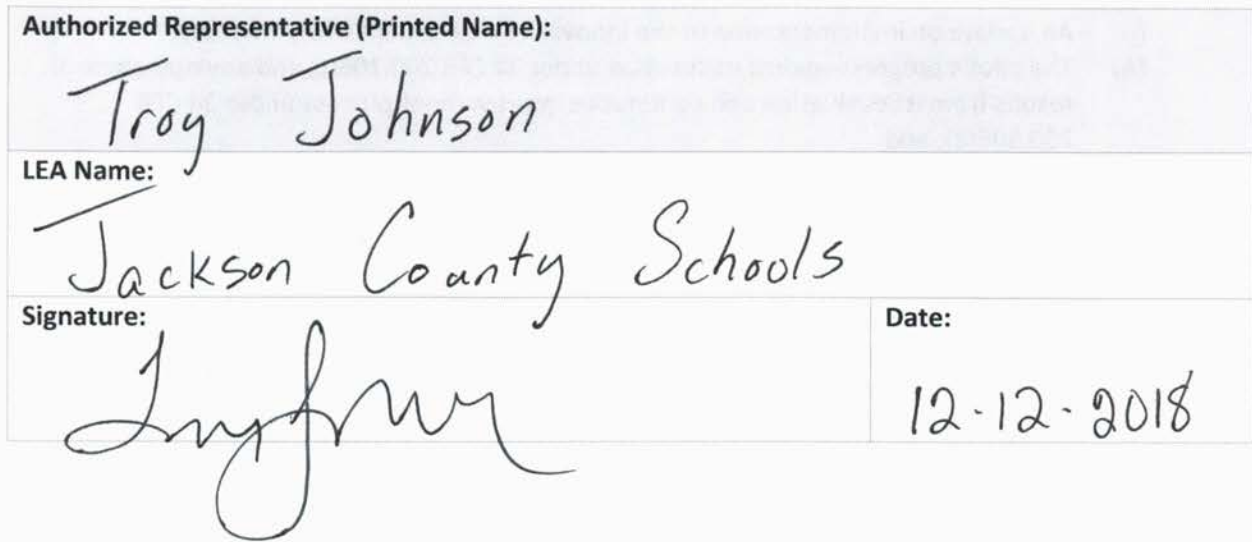 Authorized Representative (Printed Name):
Troy Johnson
LEA Name:
Jackson County Schools
Signature:
Date:
12-12-2018